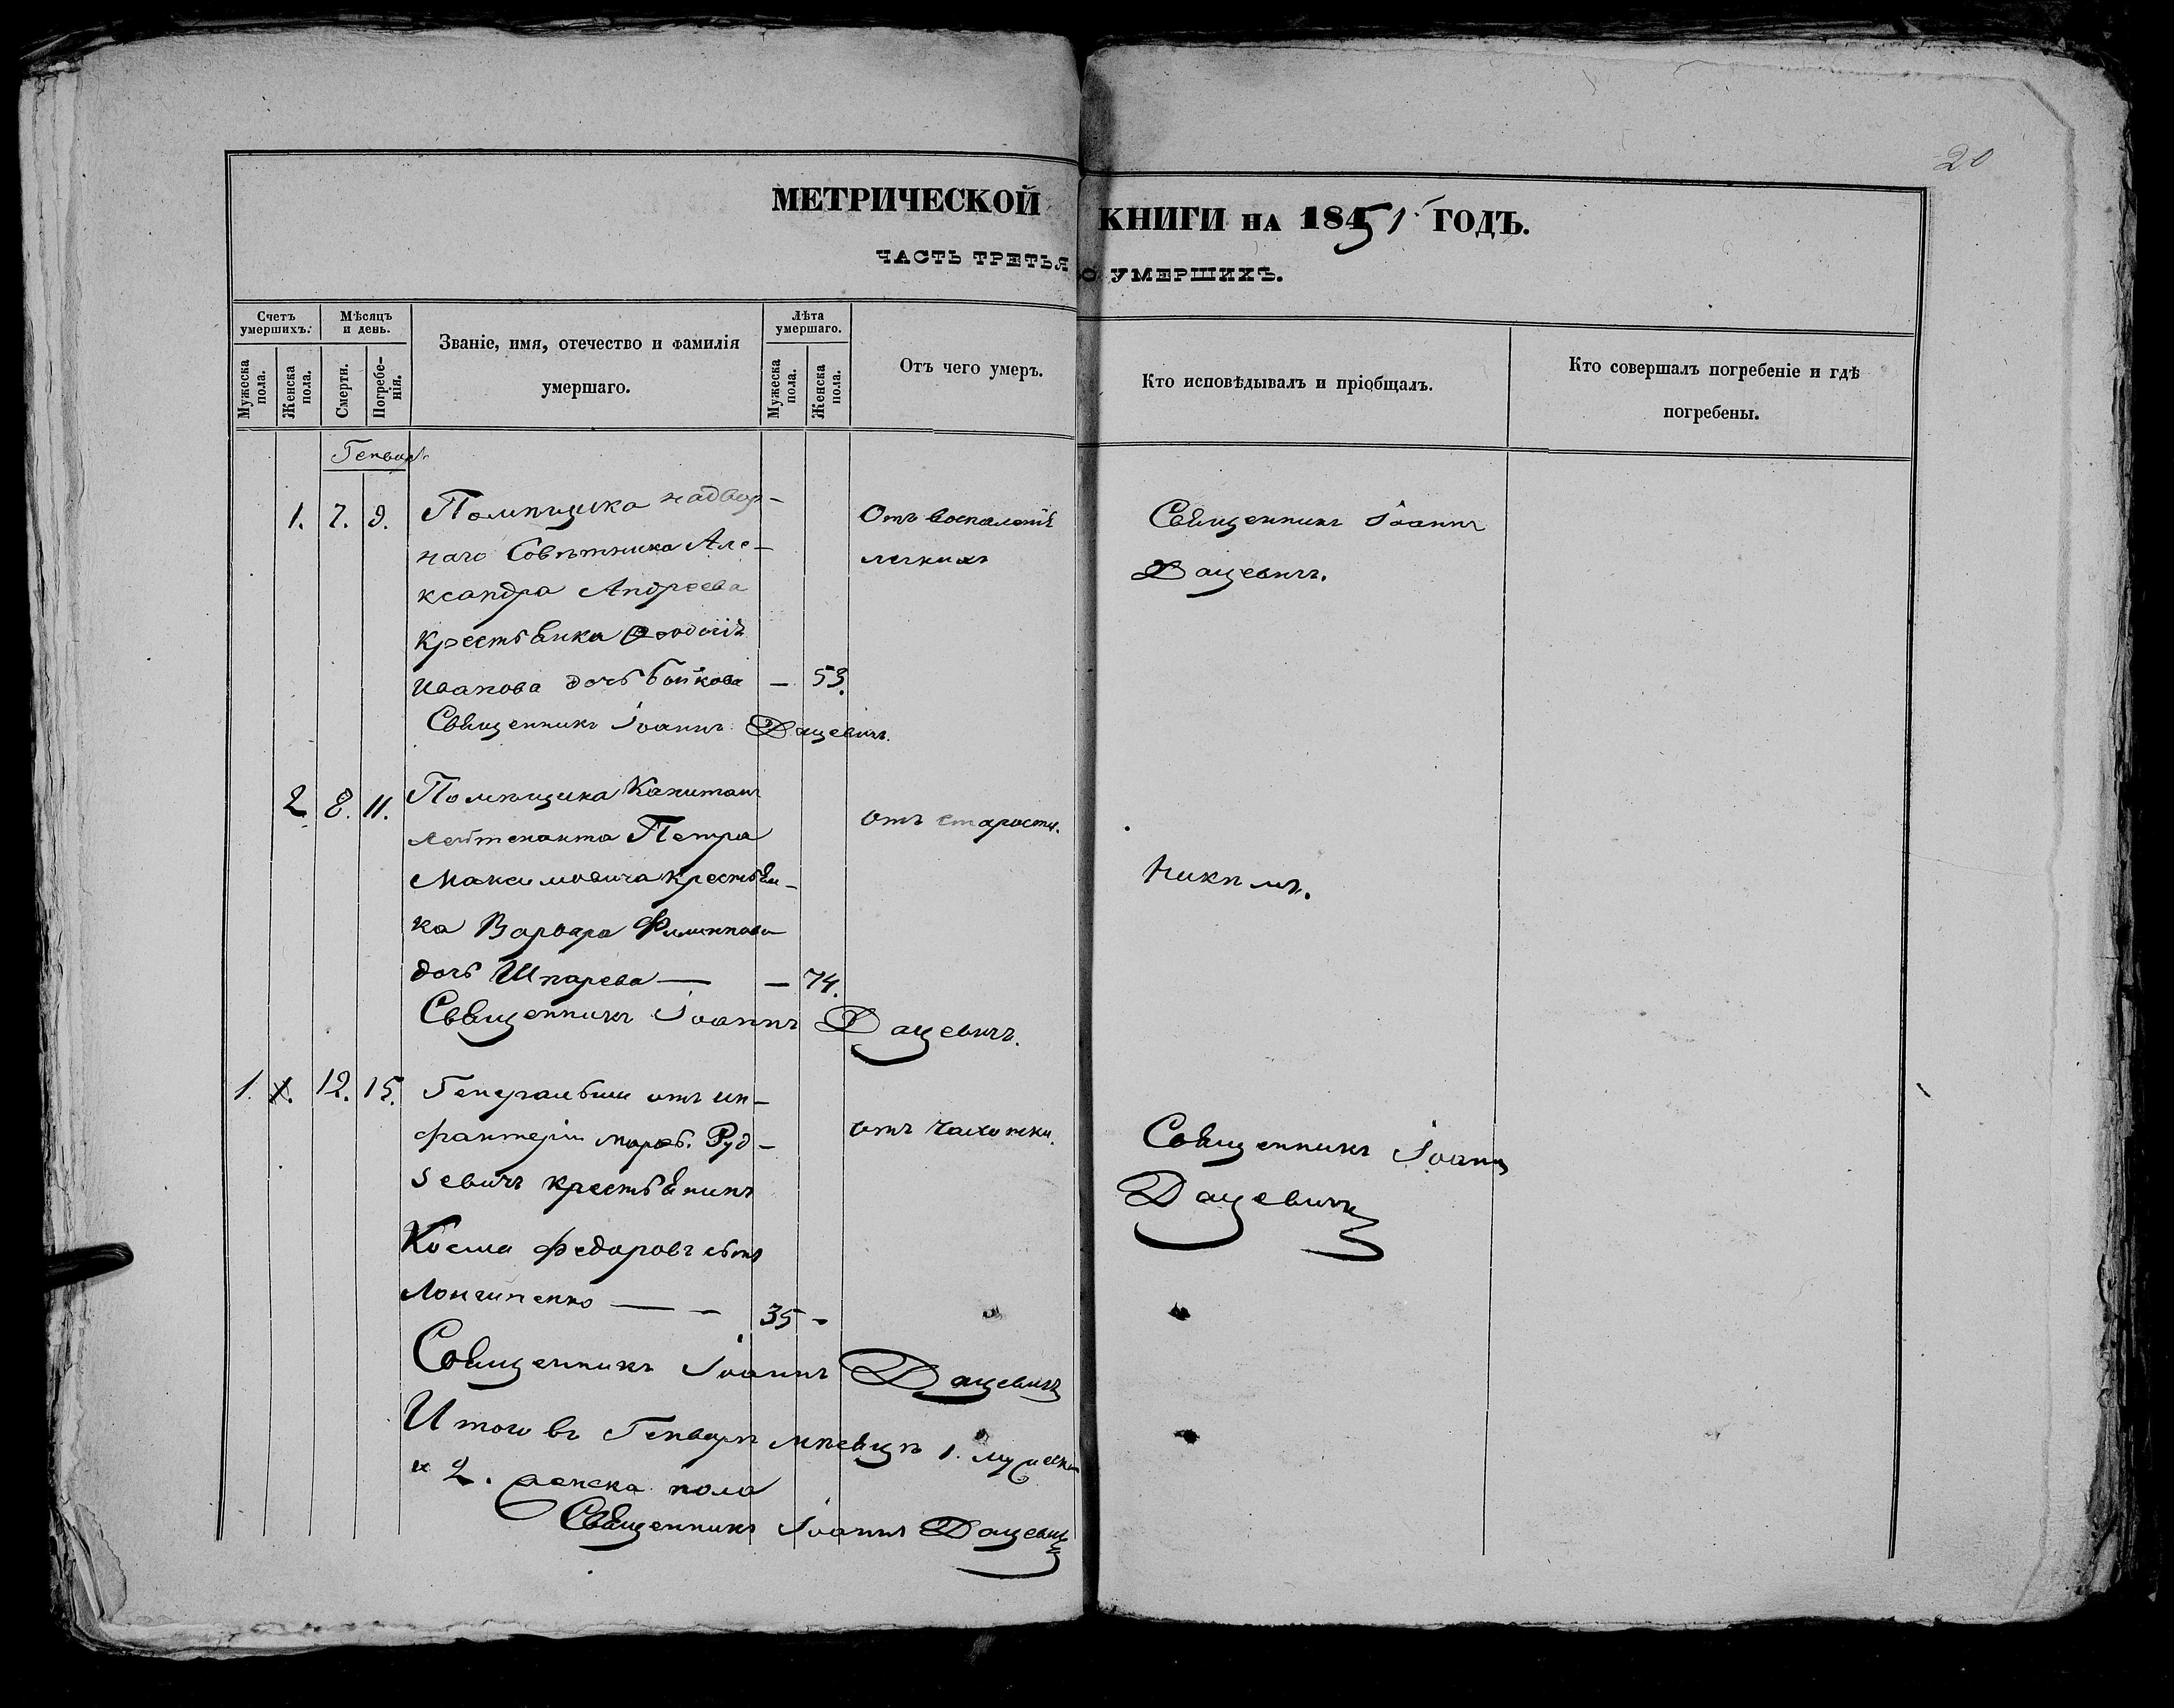 20
МЕТРИЧЕСКОЙ КНИГИ НА 1851 ГОДЪ.
ЧАСТЬ ТРЕТЬЯ О УМЕРШИХЪ.
Счетъ умершихъ.
Мѣсяцъ и день.
Званіе, имя, отечество и фамилія умершаго.
Лѣта умершаго.
Отъ чего умеръ.
Кто исповѣдывалъ и пріобщалъ.
Кто совершалъ погребеніе и гдѣ погребены.
Мужеска пола.
Женска пола.
Смерти.
Погребенія.
Мужеска пола.
Женска пола.
Генварь
1. 7. 9. Помѣщика надвор-
наго Совѣтника Але-
ксандра Андреева
крестьянка Феодосія
Иванова дочь Бойкова — 53.
Отъ воспаленія
легкихъ
Священникъ Іоаннъ
Дацевичъ.
Священникъ Іоаннъ Дацевичъ.
2 8. 11. Помѣщика Капитанъ
Лейтенанта Петра
Максимовича крестьян-
ка Варвара Филиппова
дочь Шпарева — — 74.
отъ старости.
Никѣмъ.
Священникъ Іоаннъ Дацевичъ.
1. 12. 15. Генеральши отъ ин-
фантеріи Руд-
зевичъ крестьянинъ
Косма Федоровъ сынъ
— — 35 -
отъ чахотки.
Священникъ Іоаннъ
Дацевичъ
Священникъ Іоаннъ Дацевичъ
Итого въ Генварѣ мѣсяцѣ 1. мужеска
и 2. женска пола
Священникъ Іоаннъ Дацевичъ